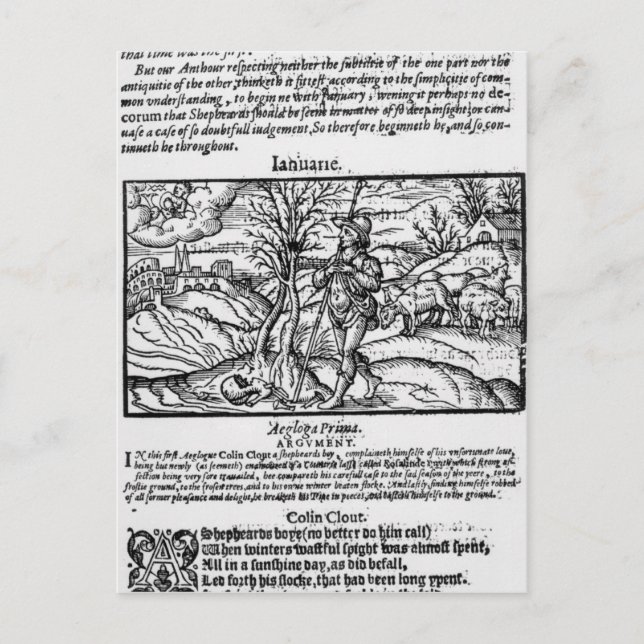 that time was the first.
But our Anthour respecting neither the subtiltie of the one part nor the
antiquitie of the other, thinketh it fittest according to the simplicitie of com-
mon vnderstanding, to begin ne with Ianuary, wening it perhaps no de-
corum that Shepheards should be seene in matter of so deep insight, or can-
uase a case of so doubtfull iudgement, So therefore beginneth he, and so con-
tinueth he throughout.
Ianuarie.
Aegloga Prima.
ARGVMENT.
IN this first Aeglogue Colin Clout a shepheards boy, complaineth himselfe of his vnfortunate loue,
being but newly (as seemeth) enamoured of a Countrie lasse called Rosalinde: with which strong af-
fection being very sore trauailed, hee compareth his carefull case to the sad season of the yeere, to the
frostie ground, to the frosen trees, and to his owne winter beaten flocke. And lastly, finding himselfe robbed
of all former pleasance and delight, he breaketh his Pipe in peeces, and casteth himselfe to the ground.
Colin Clout.
A Shepheards boye (no better do him call)
When winters wastful spight was almost spent,
All in a sunshine day, as did befall,
Led forth his flocke, that had been long ypent.